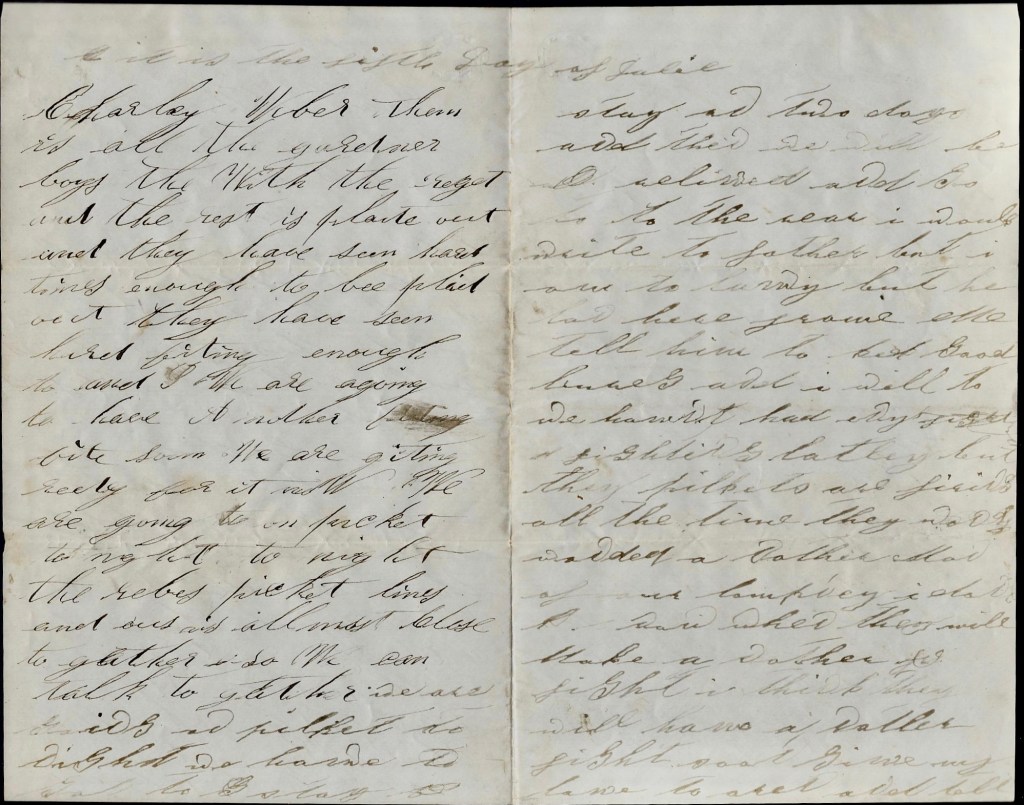 & it is the sixth Day of Julie
Charley Wiber them
is all the gardner
boys the With the reget
and the rest is plaite out
and they have seen hard
times enough to bee plaid
out they have seen
hard fiting enough
to and I We are agoing
to have A nother
bite soon We are giting
reedy for it noW We
are going to on picket
to night to night
the rebes picket lines
and ous is allmost Close
to gather so We can
talk to gether we are
on picket to
night we have to
to stay
stay ad two days
add thed we will be
relived add Go
to to the rear i would
write to father but i
am to but he
tell him to Good
add i will to
we had
fighting latley but
they pickets are firing
all the time they
wooded a dother Mad
of our i dot
know when they will
Make a dother
fight i think they
will have a dother
fight Give my
love to add tell